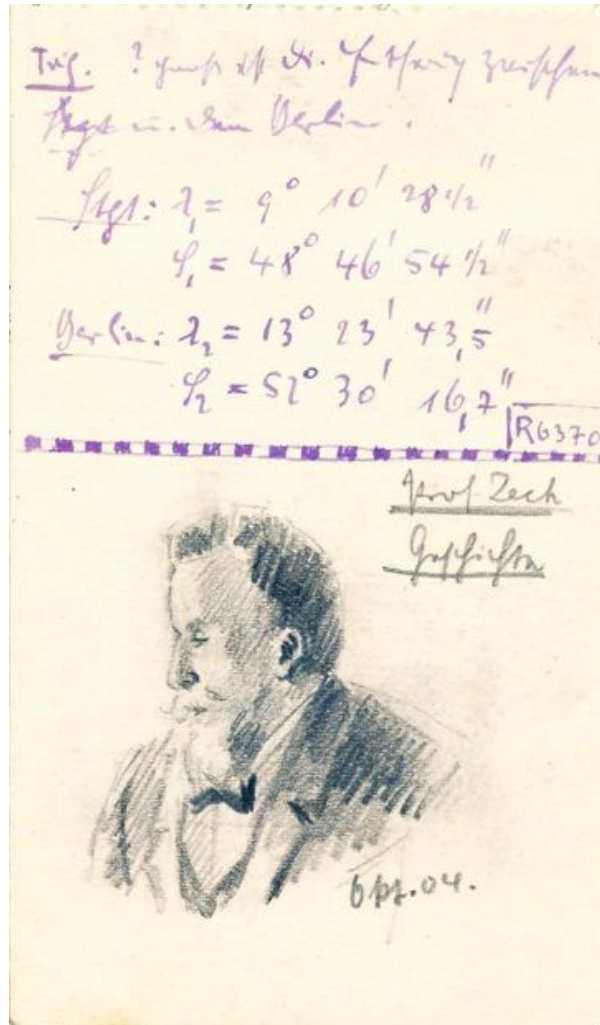 Trig. ? groß ist die Entferng zwischen
Stgt u. dem Berlin.
Stgt: λ₁ = 9° 10' 28 1/2''
φ₁ = 48° 46' 54 1/2''
Berlin: λ₂ = 13° 23' 43,5''
φ₂ = 52° 30' 16,7''
R6370
Prof Zech
Geschichte
04.